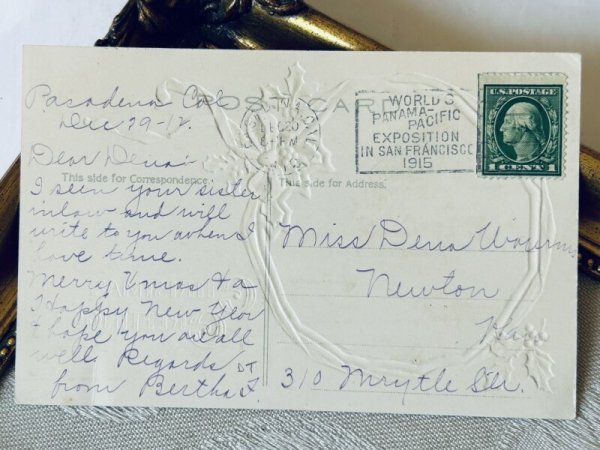 POST CARD
Pasadena Cal
Dec 29-12.
Dear Dena-
This side for Correspondence.
I seen your sister
inlaw and will
write to you when I
have time.
Merry Xmas & a
Happy New Year
I hope you are all
well Regards
from Bertha
WORLD'S
PANAMA-PACIFIC
EXPOSITION
IN SAN FRANCISCO
1915
U.S. POSTAGE
1 CENT 1
This side for Address.
Miss Dena
Newton
Kan
310 Myrtle